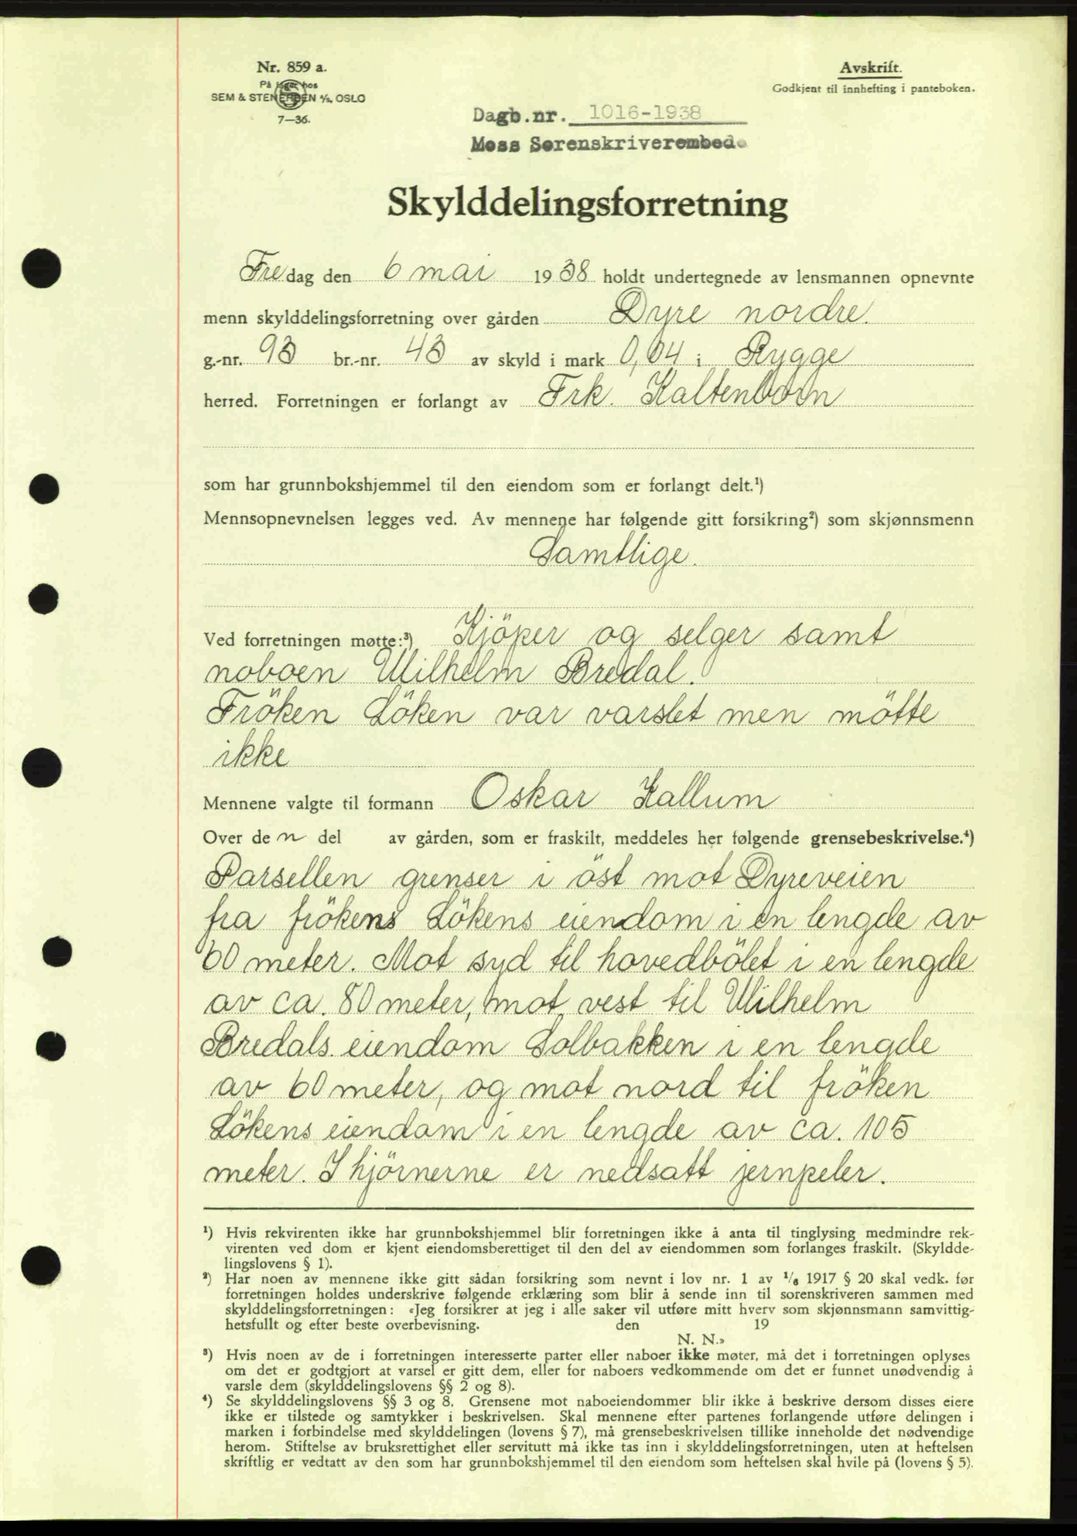 Nr. 859 a.
På lager hos
SEM & STENERSEN A/S, OSLO
7—36.
Avskrift.
Godkjent til innhefting i panteboken.
Dagb.nr. 1016-1938
Moss Sorenskriverembede
Skylddelingsforretning
Fredag den 6 mai 1938 holdt undertegnede av lensmannen opnevnte
menn skylddelingsforretning over gården Dyre nordre.
g.-nr. 93 br.-nr. 43 av skyld i mark 0,04 i Rygge
herred. Forretningen er forlangt av Frk. Kaltenborn
som har grunnbokshjemmel til den eiendom som er forlangt delt.¹)
Mennsopnevnelsen legges ved. Av mennene har følgende gitt forsikring²) som skjønnsmenn
Samtlige.
Ved forretningen møtte:³) Kjöper og selger samt
naboen Wilhelm Bredal.
Fröken Löken var varslet men mötte
ikke
Mennene valgte til formann Oskar Kallum
Over den del av gården, som er fraskilt, meddeles her følgende grensebeskrivelse.⁴)
Parsellen grenser i öst mot Dyreveien
fra frökens Lökens eiendom i en lengde av
60 meter. Mot syd til hovedbölet i en lengde
av ca. 80 meter, mot vest til Wilhelm
Bredals eiendom Solbakken i en lengde
av 60 meter, og mot nord til fröken
Lökens eiendom i en lengde av ca. 105
meter. I hjörnerne er nedsatt jernpeler.
¹) Hvis rekvirenten ikke har grunnbokshjemmel blir forretningen ikke å anta til tinglysing medmindre rek-
virenten ved dom er kjent eiendomsberettiget til den del av eiendommen som forlanges fraskilt. (Skyldde-
lingslovens § 1).
²) Har noen av mennene ikke gitt sådan forsikring som nevnt i lov nr. 1 av ¹/₆ 1917 § 20 skal vedk. før
forretningen holdes underskrive følgende erklæring som blir å sende inn til sorenskriveren sammen med
skylddelingsforretningen: «Jeg forsikrer at jeg i alle saker vil utføre mitt hverv som skjønnsmann samvittig-
hetsfullt og efter beste overbevisning. den 19
N. N.»
³) Hvis noen av de i forretningen interesserte parter eller naboer ikke møter, må det i forretningen oplyses
om det er godtgjort at varsel er gitt dem, eller for naboers vedkommende om det er funnet unødvendig å
varsle dem (skylddelingslovens §§ 2 og 8).
⁴) Se skylddelingslovens §§ 3 og 8. Grensene mot naboeiendommer blir ikke å beskrive dersom disses eiere
ikke er tilstede og samtykker i beskrivelsen. Skal mennene efter partenes forlangende utføre delingen i
marken i forbindelse med skylddelingen (lovens § 7), må grensebeskrivelsen tillike inneholde det nødvendige
herom. Stiftelse av bruksrettighet eller servitutt må ikke tas inn i skylddelingsforretningen, uten at heftelsen
skriftlig er vedtatt av den som har grunnbokshjemmel til den eiendom som heftelsen skal hvile på (lovens § 5).